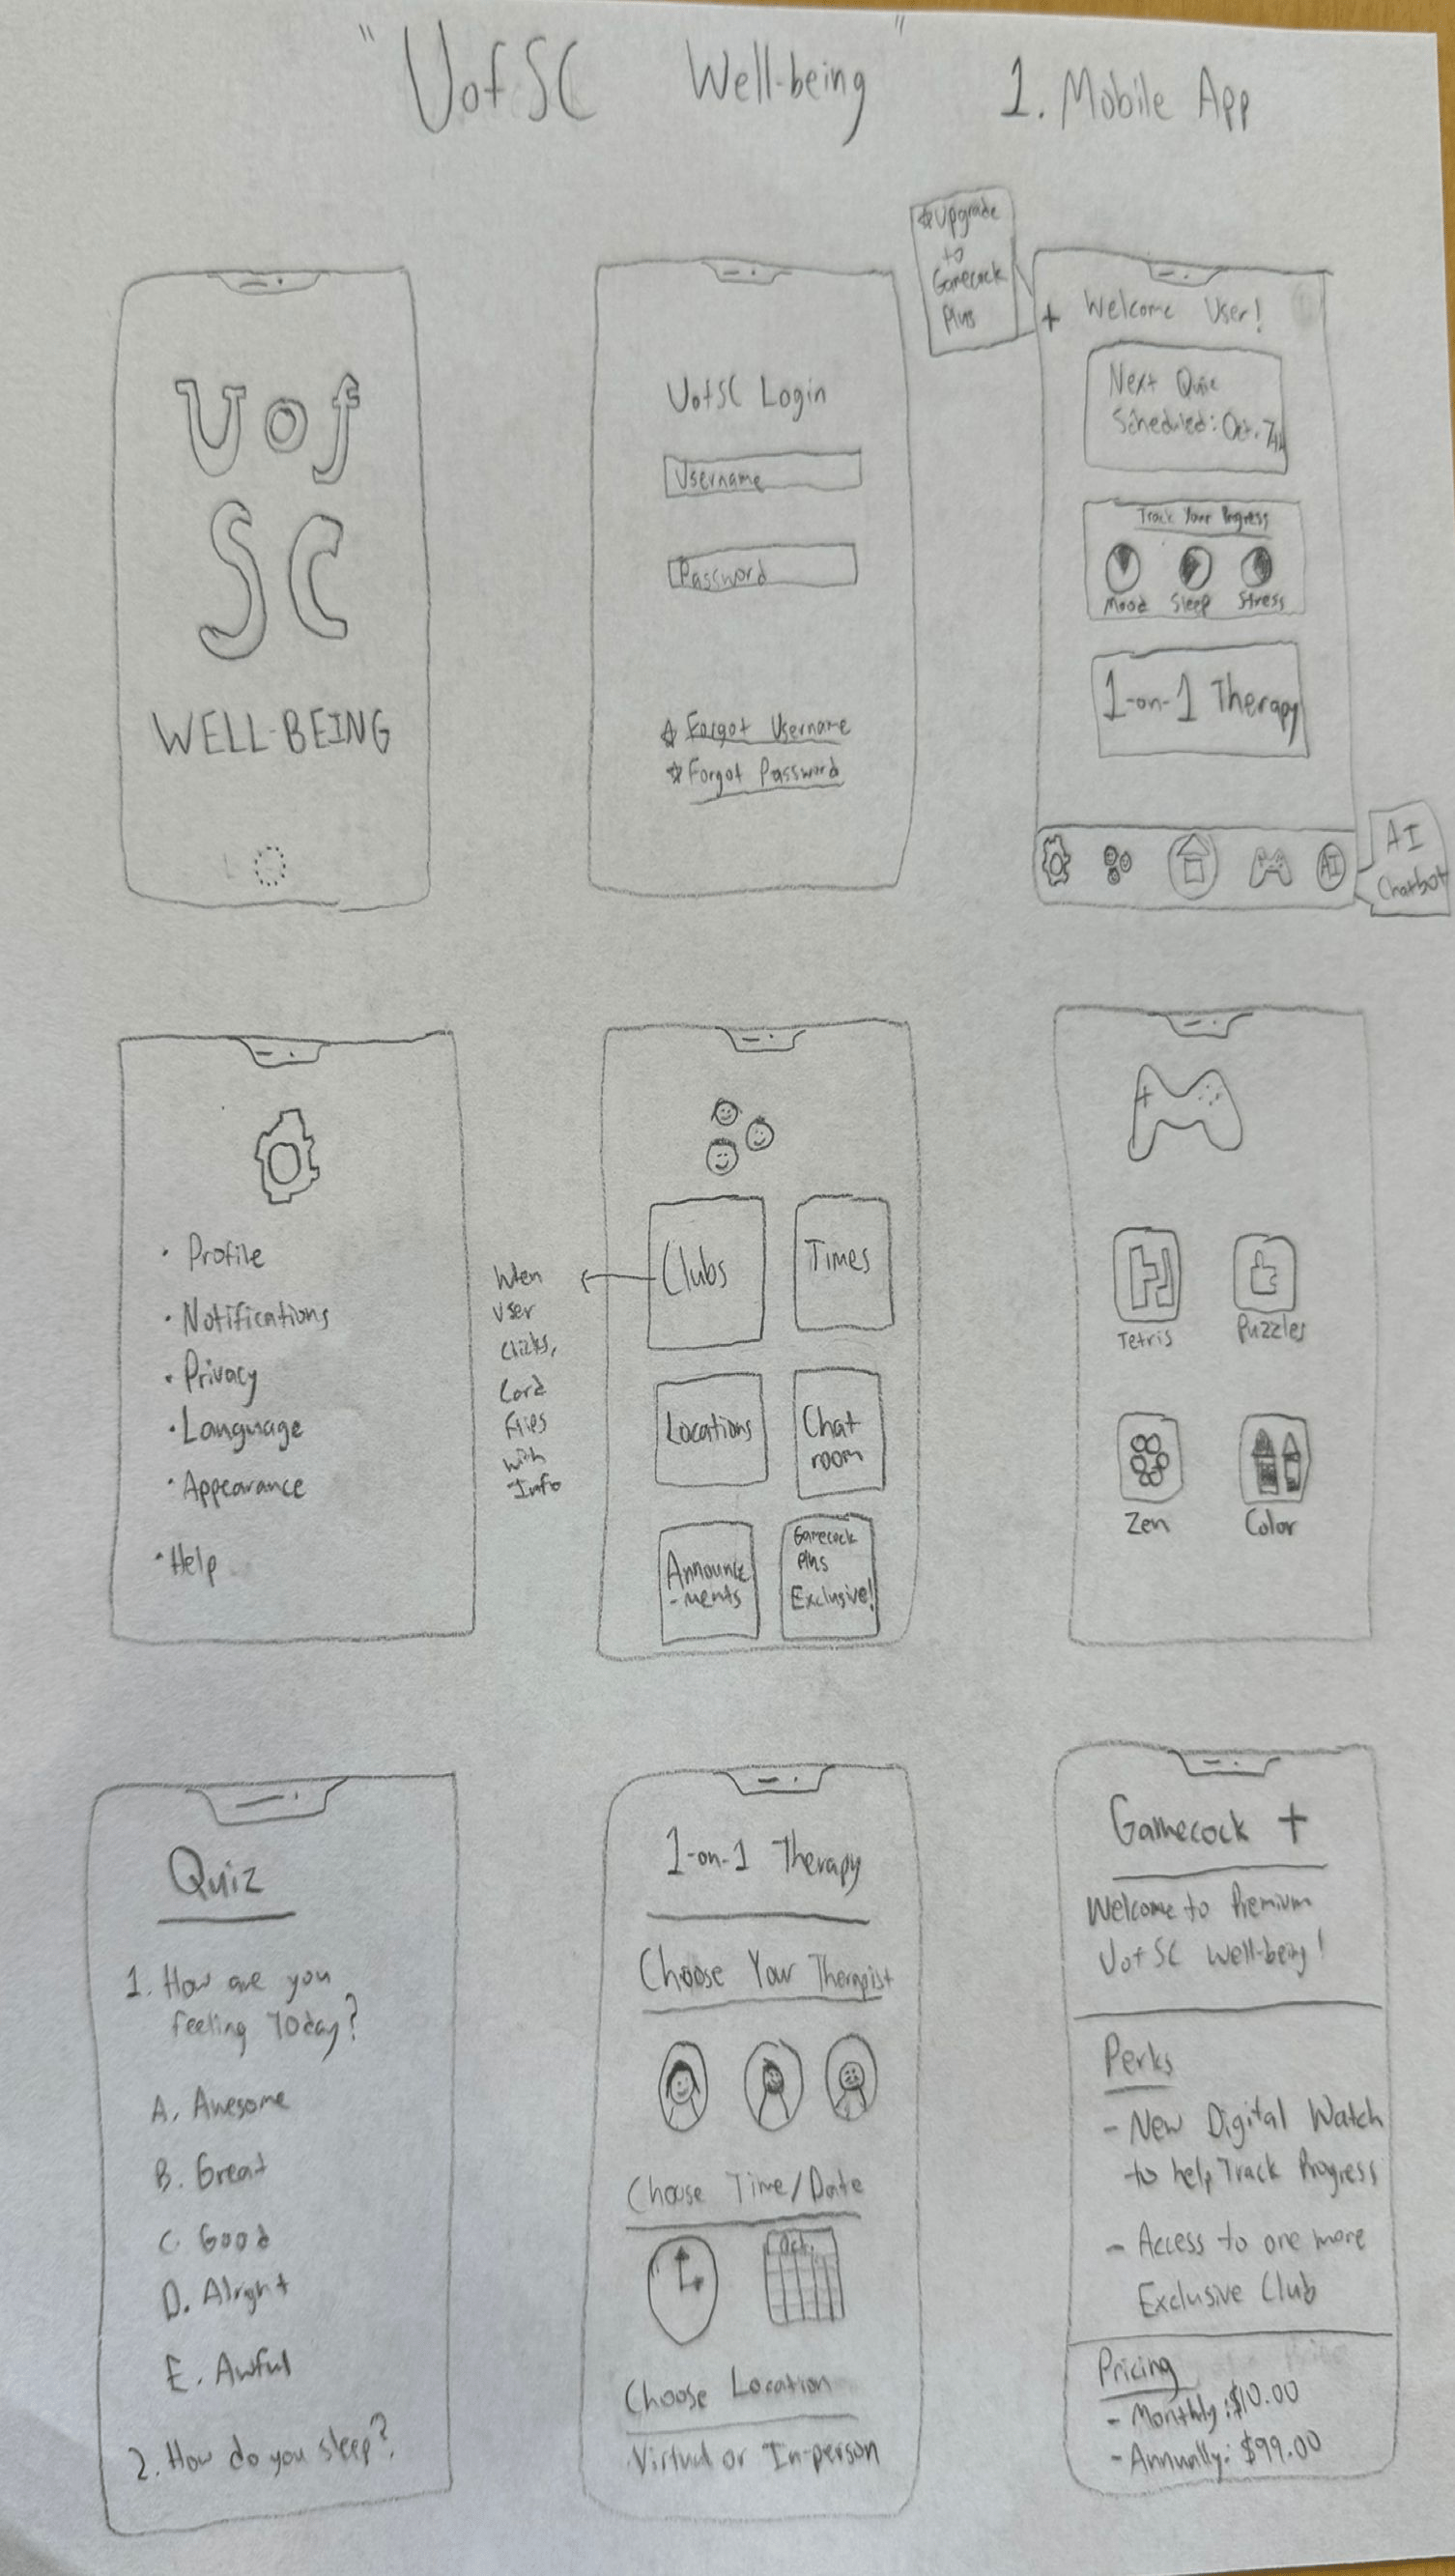 "UofSC Well-being"
1. Mobile App
Uof
SC
WELL-BEING
UofSC Login
Username
Password
☆ Forgot Username
☆ Forgot Password
☆Upgrade
to
Gamecock
Plus
+ Welcome User!
Next Quiz
Scheduled: Oct. 7th
Track Your Progress
Mood Sleep Stress
1-on-1 Therapy
AI
AI
Chatbot
· Profile
· Notifications
· Privacy
· Language
· Appearance
· Help
When
user
Clicks,
Card
Flips
with
Info
Clubs
Times
Locations
Chat
room
Announce
-ments
Gamecock
Plus
Exclusive!
Tetris
Puzzles
Zen
Color
Quiz
1. How are you
feeling Today?
A. Awesome
B. Great
C. Good
D. Alright
E. Awful
2. How do you sleep?
1-on-1 Therapy
Choose Your Therapist
Choose Time/Date
Oct.
Choose Location
Virtual or In-person
Gamecock +
Welcome to Premium
UofSC Well-being!
Perks
- New Digital Watch
to help Track Progress
- Access to one more
Exclusive Club
Pricing
- Monthly: $10.00
- Annually: $99.00